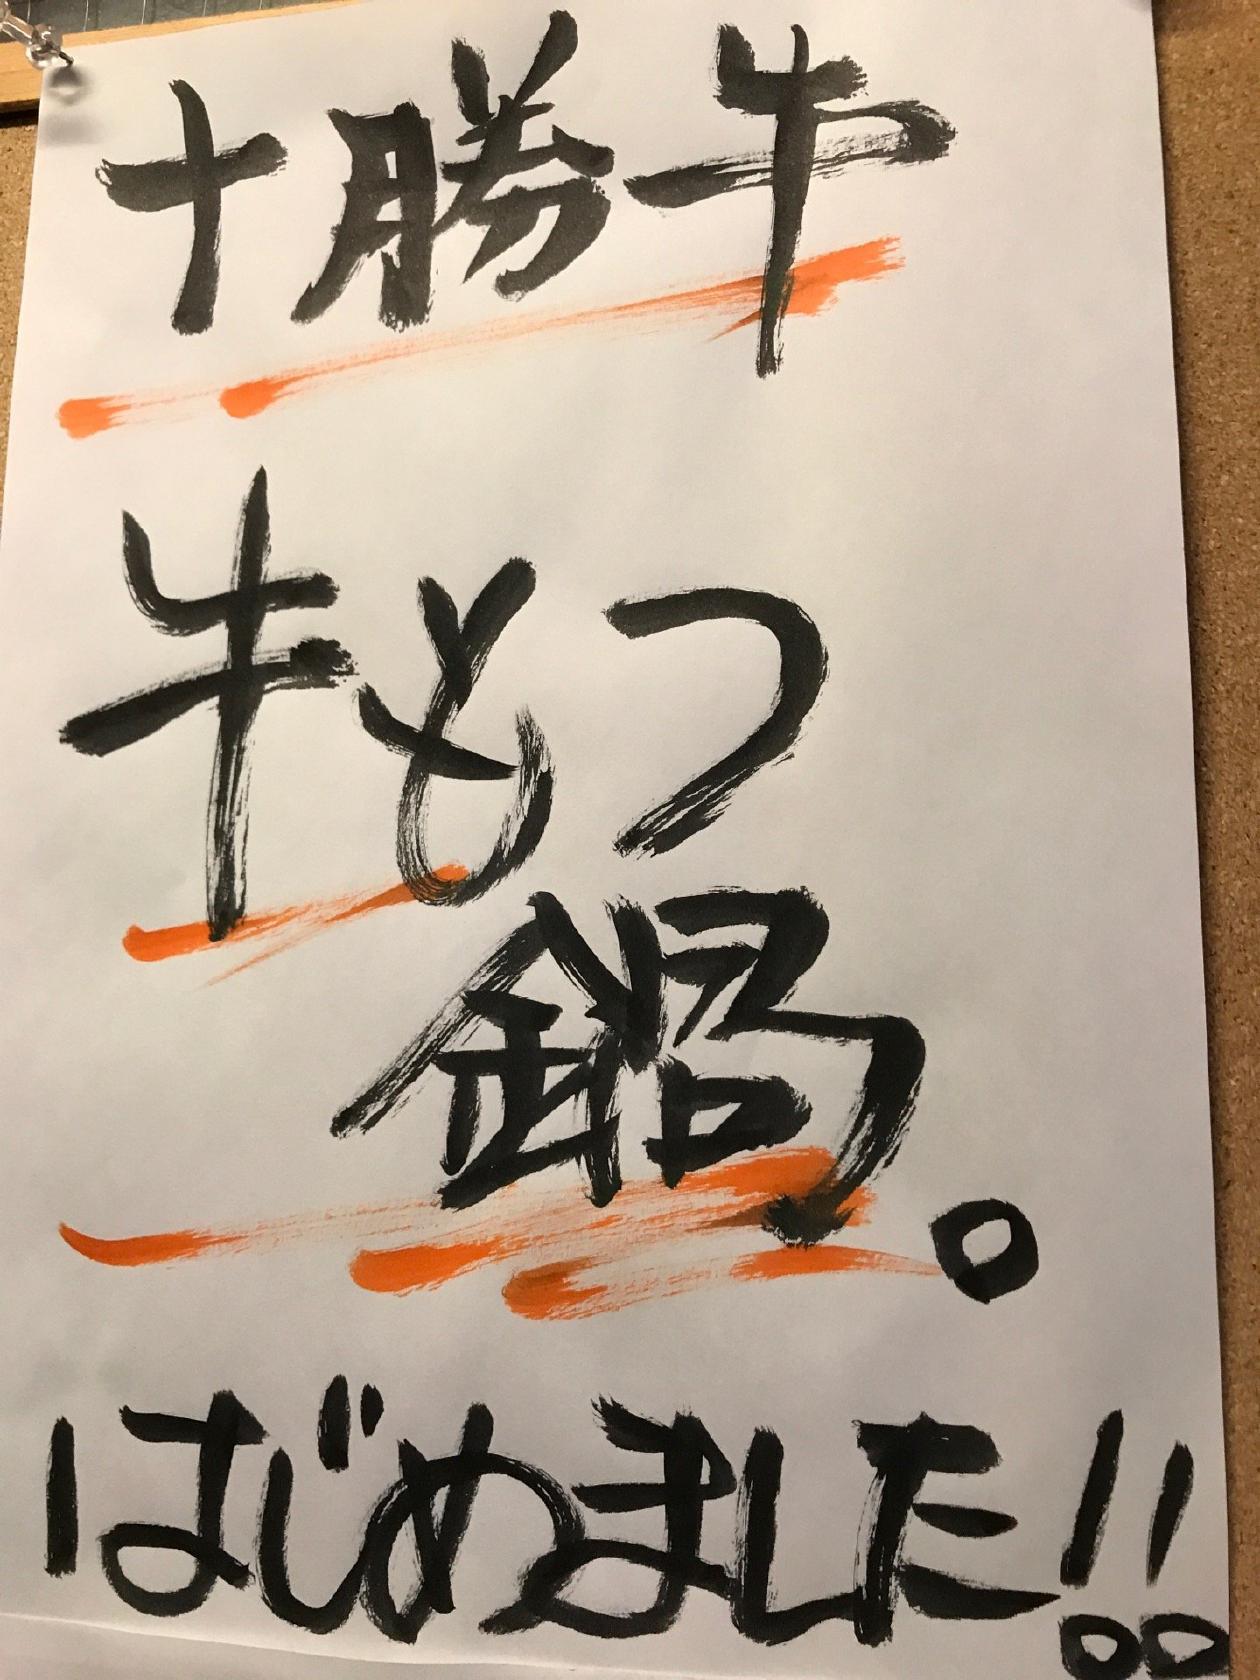 十勝牛
牛もつ
鍋。
はじめました!!